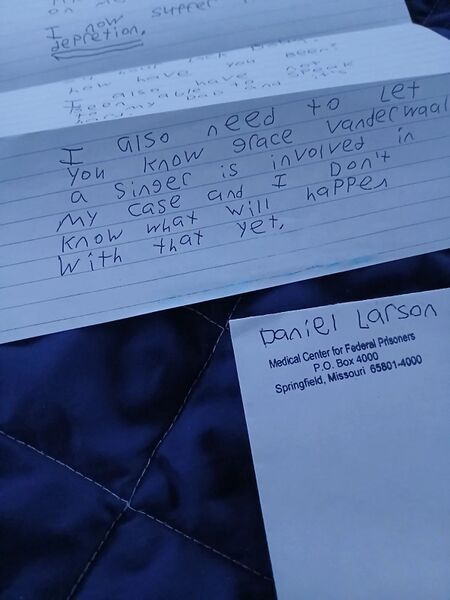 on me supper
I now
depretion.
how have you been
I also have not
been able to speak
I also need to let
you know grace vanderwaal
a singer is involved in
my case and I Don't
know what will happen
with that yet.
Daniel Larson
Medical Center for Federal Prisoners
P.O. Box 4000
Springfield, Missouri 65801-4000